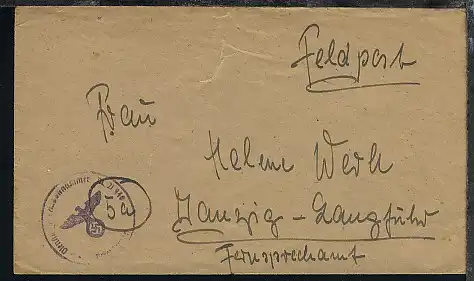 Feldpost
Frau
Helene Werk
Danzig-Langfuhr
Fernsprechamt
5a